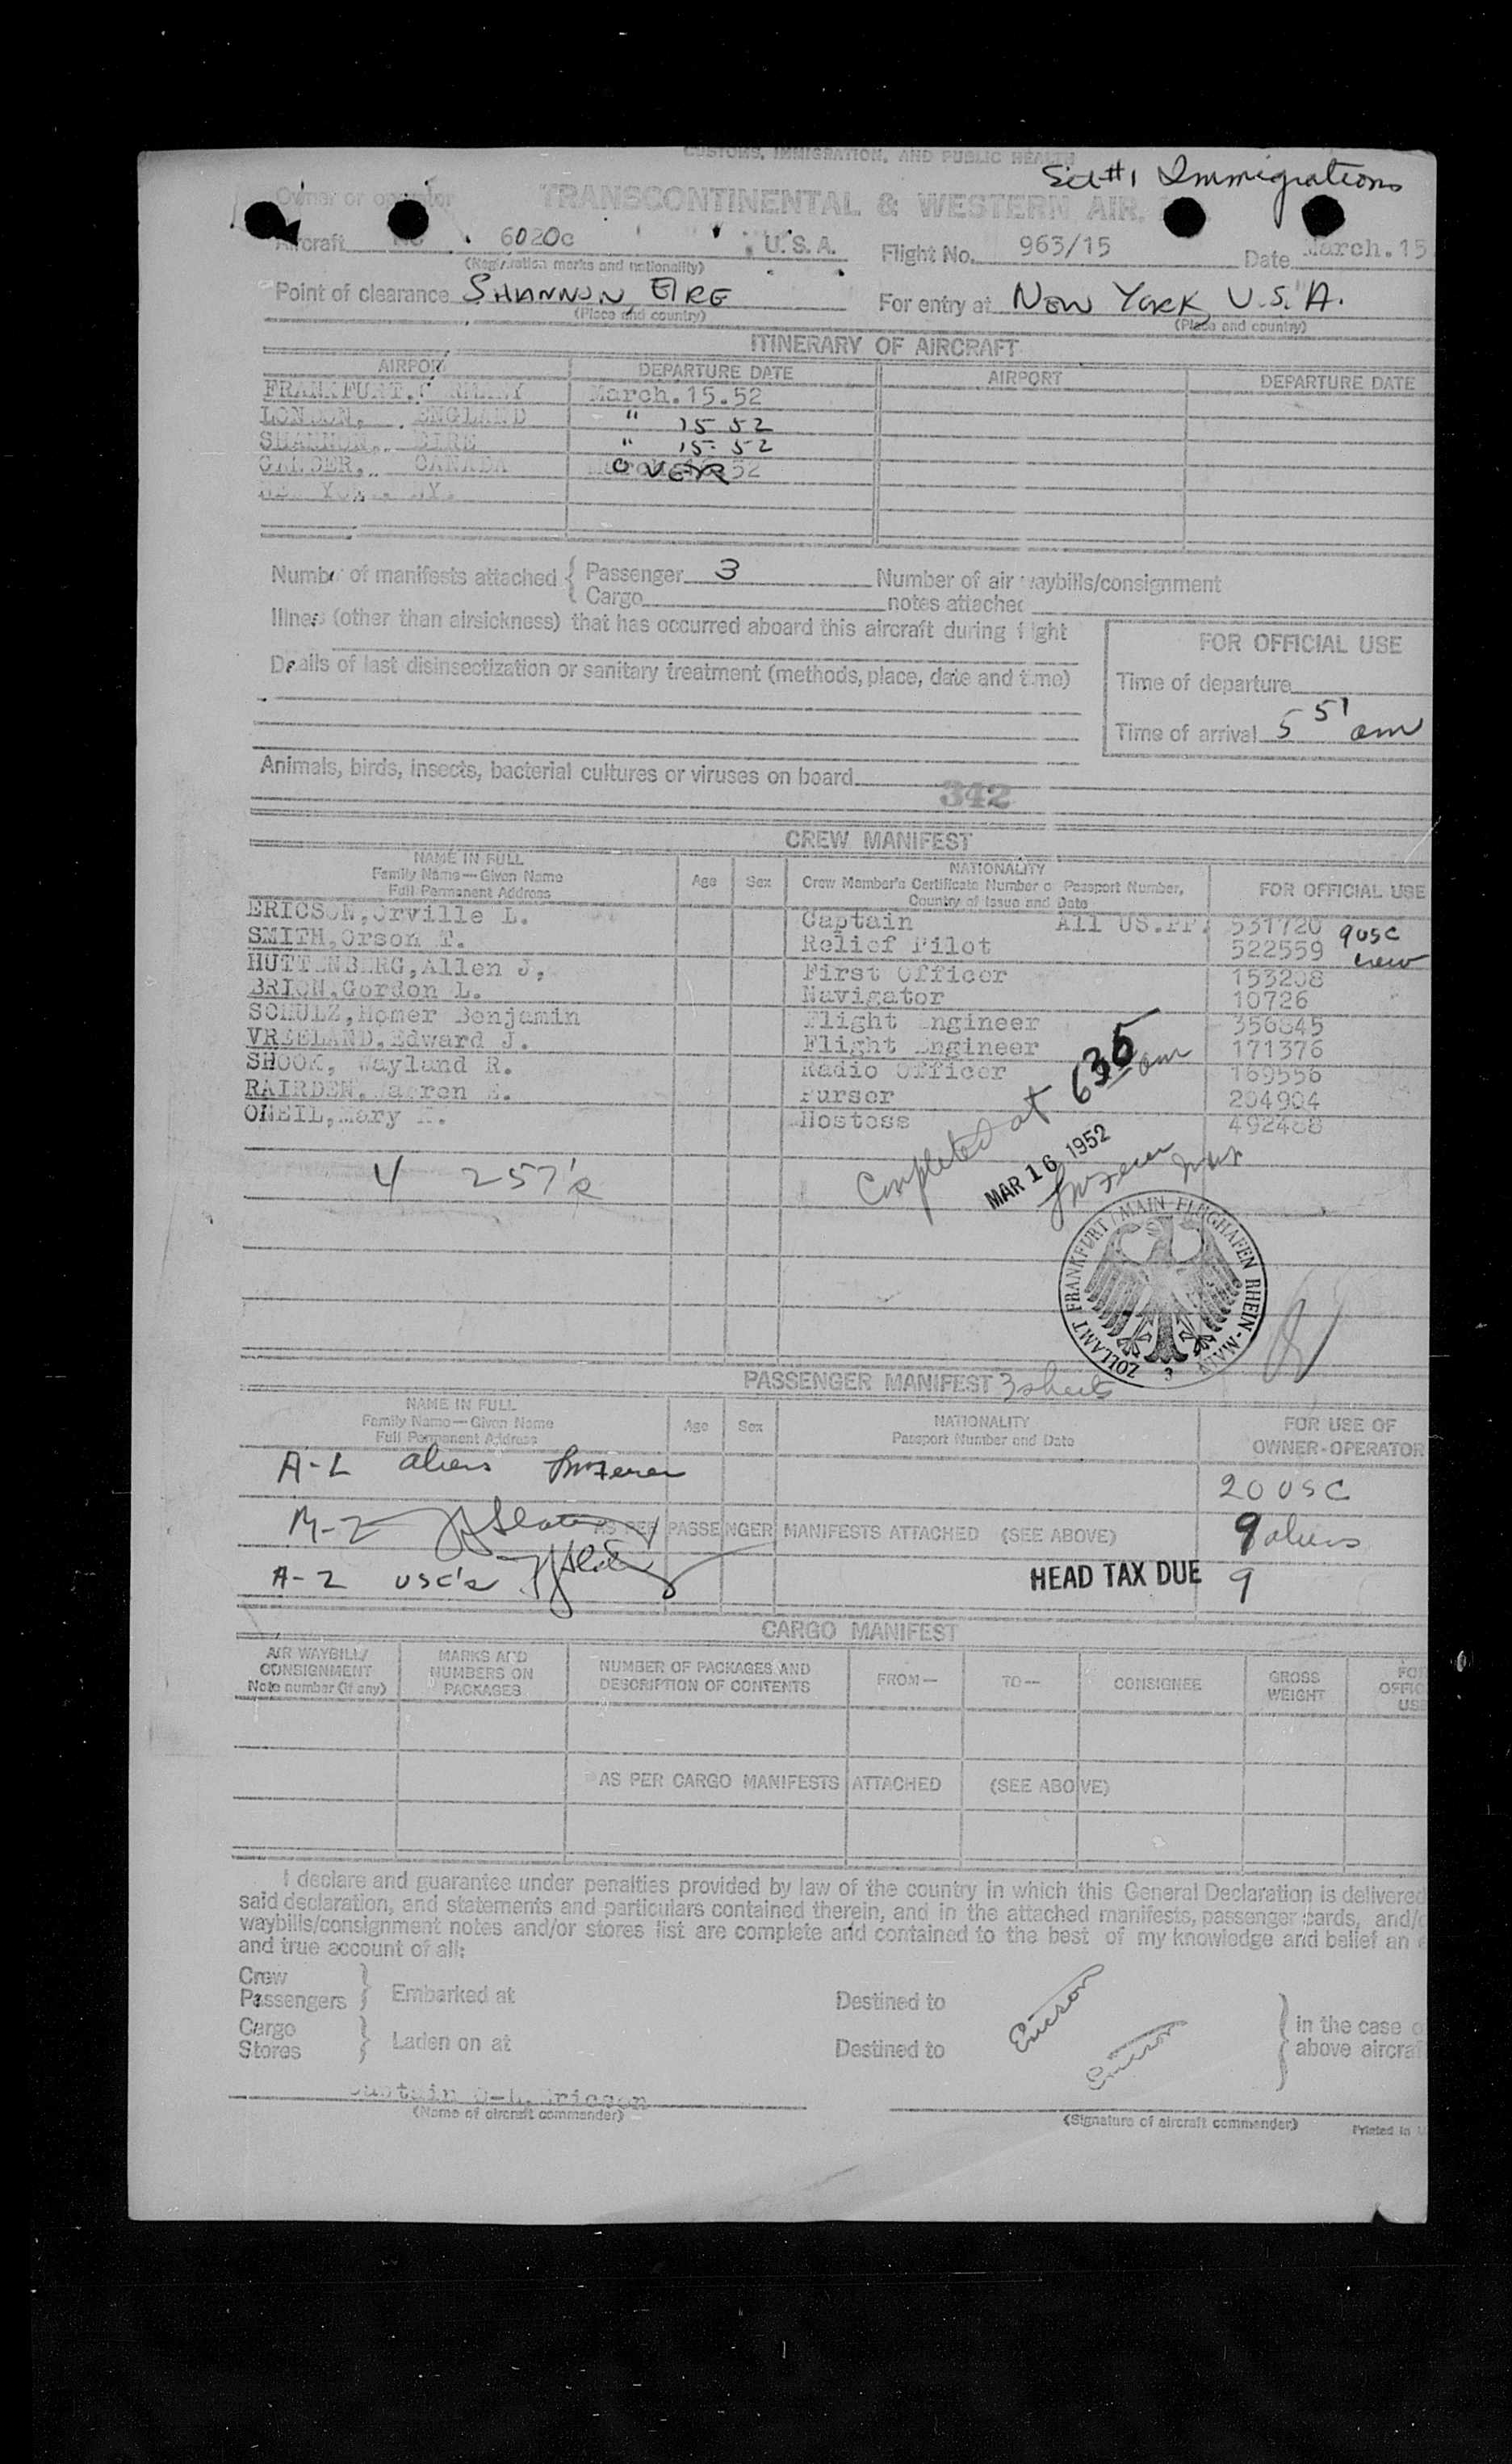 CUSTOMS, IMMIGRATION, AND PUBLIC HEALTH
Set #1 Immigrations
Owner or operator TRANSCONTINENTAL & WESTERN AIR,
Aircraft 6020c U.S.A. Flight No. 963/15 Date March.15
(Registration marks and nationality)
Point of clearance SHANNON, EIRE For entry at NEW YORK, U.S.A.
(Place and country) (Place and country)
ITINERARY OF AIRCRAFT
AIRPORT DEPARTURE DATE AIRPORT DEPARTURE DATE
FRANKFURT, GERMANY March.15.52
LONDON, ENGLAND " 15 52
SHANNON, EIRE " 15 52
GANDER, CANADA OVER
NEW YORK, NY.
Number of manifests attached { Passenger 3 Number of air waybills/consignment
Cargo notes attached
Illness (other than airsickness) that has occurred aboard this aircraft during flight
FOR OFFICIAL USE
Details of last disinsectization or sanitary treatment (methods, place, date and time)
Time of departure
Time of arrival 5 51 am
Animals, birds, insects, bacterial cultures or viruses on board
342
CREW MANIFEST
NAME IN FULL
Family Name—Given Name
Full Permanent Address
Age Sex
NATIONALITY
Crew Member's Certificate Number or Passport Number,
Country of Issue and Date
FOR OFFICIAL USE
ERICSON, Orville L. Captain All US.PP. 531720 9 USC
SMITH, Orson T. Relief Pilot 522559 crew
HUTTENBERG, Allen J, First Officer 153208
BRION, Gordon L. Navigator 10726
SCHULZ, Homer Benjamin Flight Engineer 356845
VREELAND, Edward J. Flight Engineer 171376
SHOOK, Wayland R. Radio Officer 169556
RAIRDEN, Warren E. Purser 204904
ONEIL, Mary Hostess 492488
4 257's
Completed at 6 35 am
MAR 16 1952
ZOLLAMT FRANKFURT/MAIN FLUGHAFEN RHEIN-MAIN
3
PASSENGER MANIFEST 3 sheets
NAME IN FULL
Family Name—Given Name
Full Permanent Address
Age Sex
NATIONALITY
Passport Number and Date
FOR USE OF
OWNER-OPERATOR
A-L aliens
20 USC
M-Z
AS PER PASSENGER MANIFESTS ATTACHED (SEE ABOVE) 9 aliens
A-Z USC's
HEAD TAX DUE 9
CARGO MANIFEST
AIR WAYBILL/
CONSIGNMENT
Note number (if any)
MARKS AND
NUMBERS ON
PACKAGES
NUMBER OF PACKAGES AND
DESCRIPTION OF CONTENTS
FROM— TO— CONSIGNEE
GROSS
WEIGHT
FOR
OFFIC
USE
AS PER CARGO MANIFESTS ATTACHED (SEE ABOVE)
I declare and guarantee under penalties provided by law of the country in which this General Declaration is delivered
said declaration, and statements and particulars contained therein, and in the attached manifests, passenger cards, and/o
waybills/consignment notes and/or stores list are complete and contained to the best of my knowledge and belief an e
and true account of all:
Crew
Passengers } Embarked at Destined to Ericson
Cargo
Stores } Laden on at Destined to Ericson
} in the case o
above aircraf
Captain O-L. Ericson
(Name of aircraft commander) (Signature of aircraft commander) Printed in U